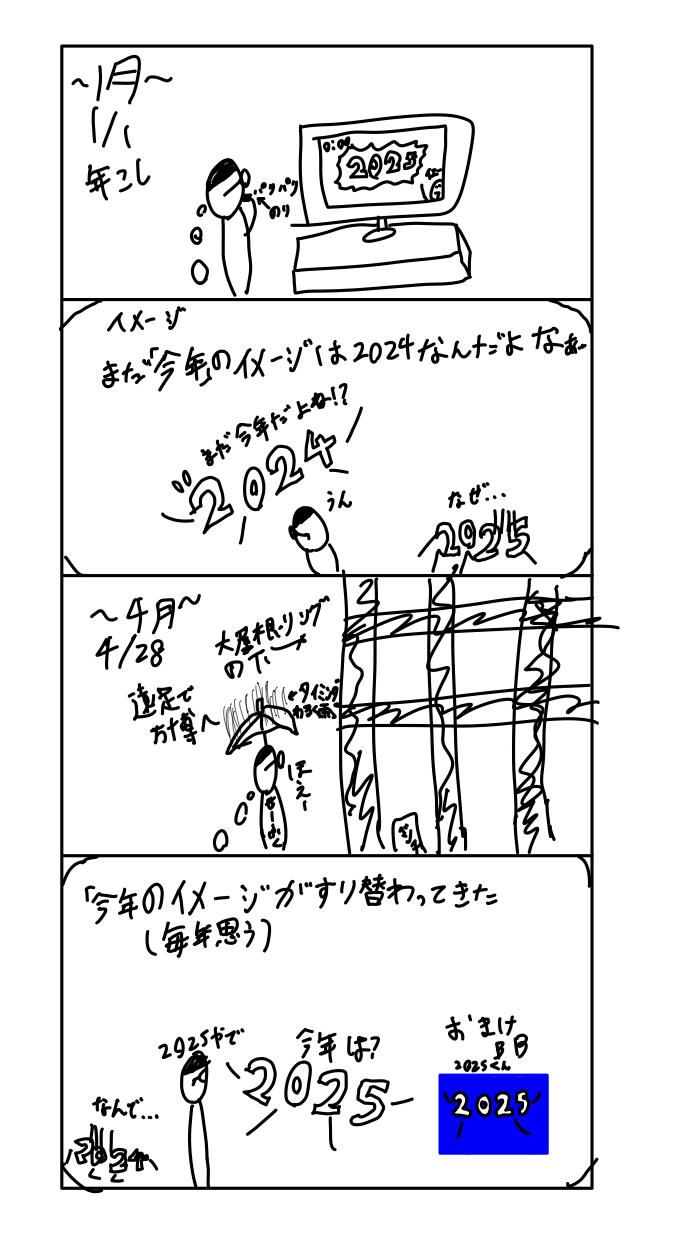 ～1月～
1/1
年こし
0:00
2025
パリパリ
のり
イメージ
まだ「今年」のイメージは2024なんだよなぁ
まだ今年だよね!?
2024
うん
なぜ…
2025
～4月～
4/28
大屋根リング
の下
遠足で
万博へ
タイミング
わるく雨
ほえー
せーふく
ベンチ
「今年のイメージがすり替わってきた
(毎年思う)
2025やで
今年は?
2025
なんで…
2024
おまけ
BB
2025くん
2025